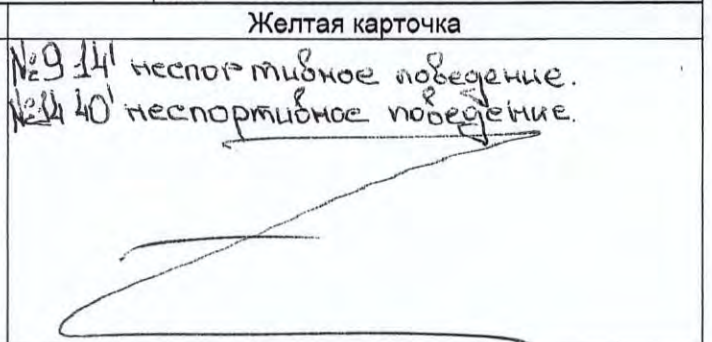 Желтая карточка
№9 14' неспортивное поведение.
№14 40' неспортивное поведение.